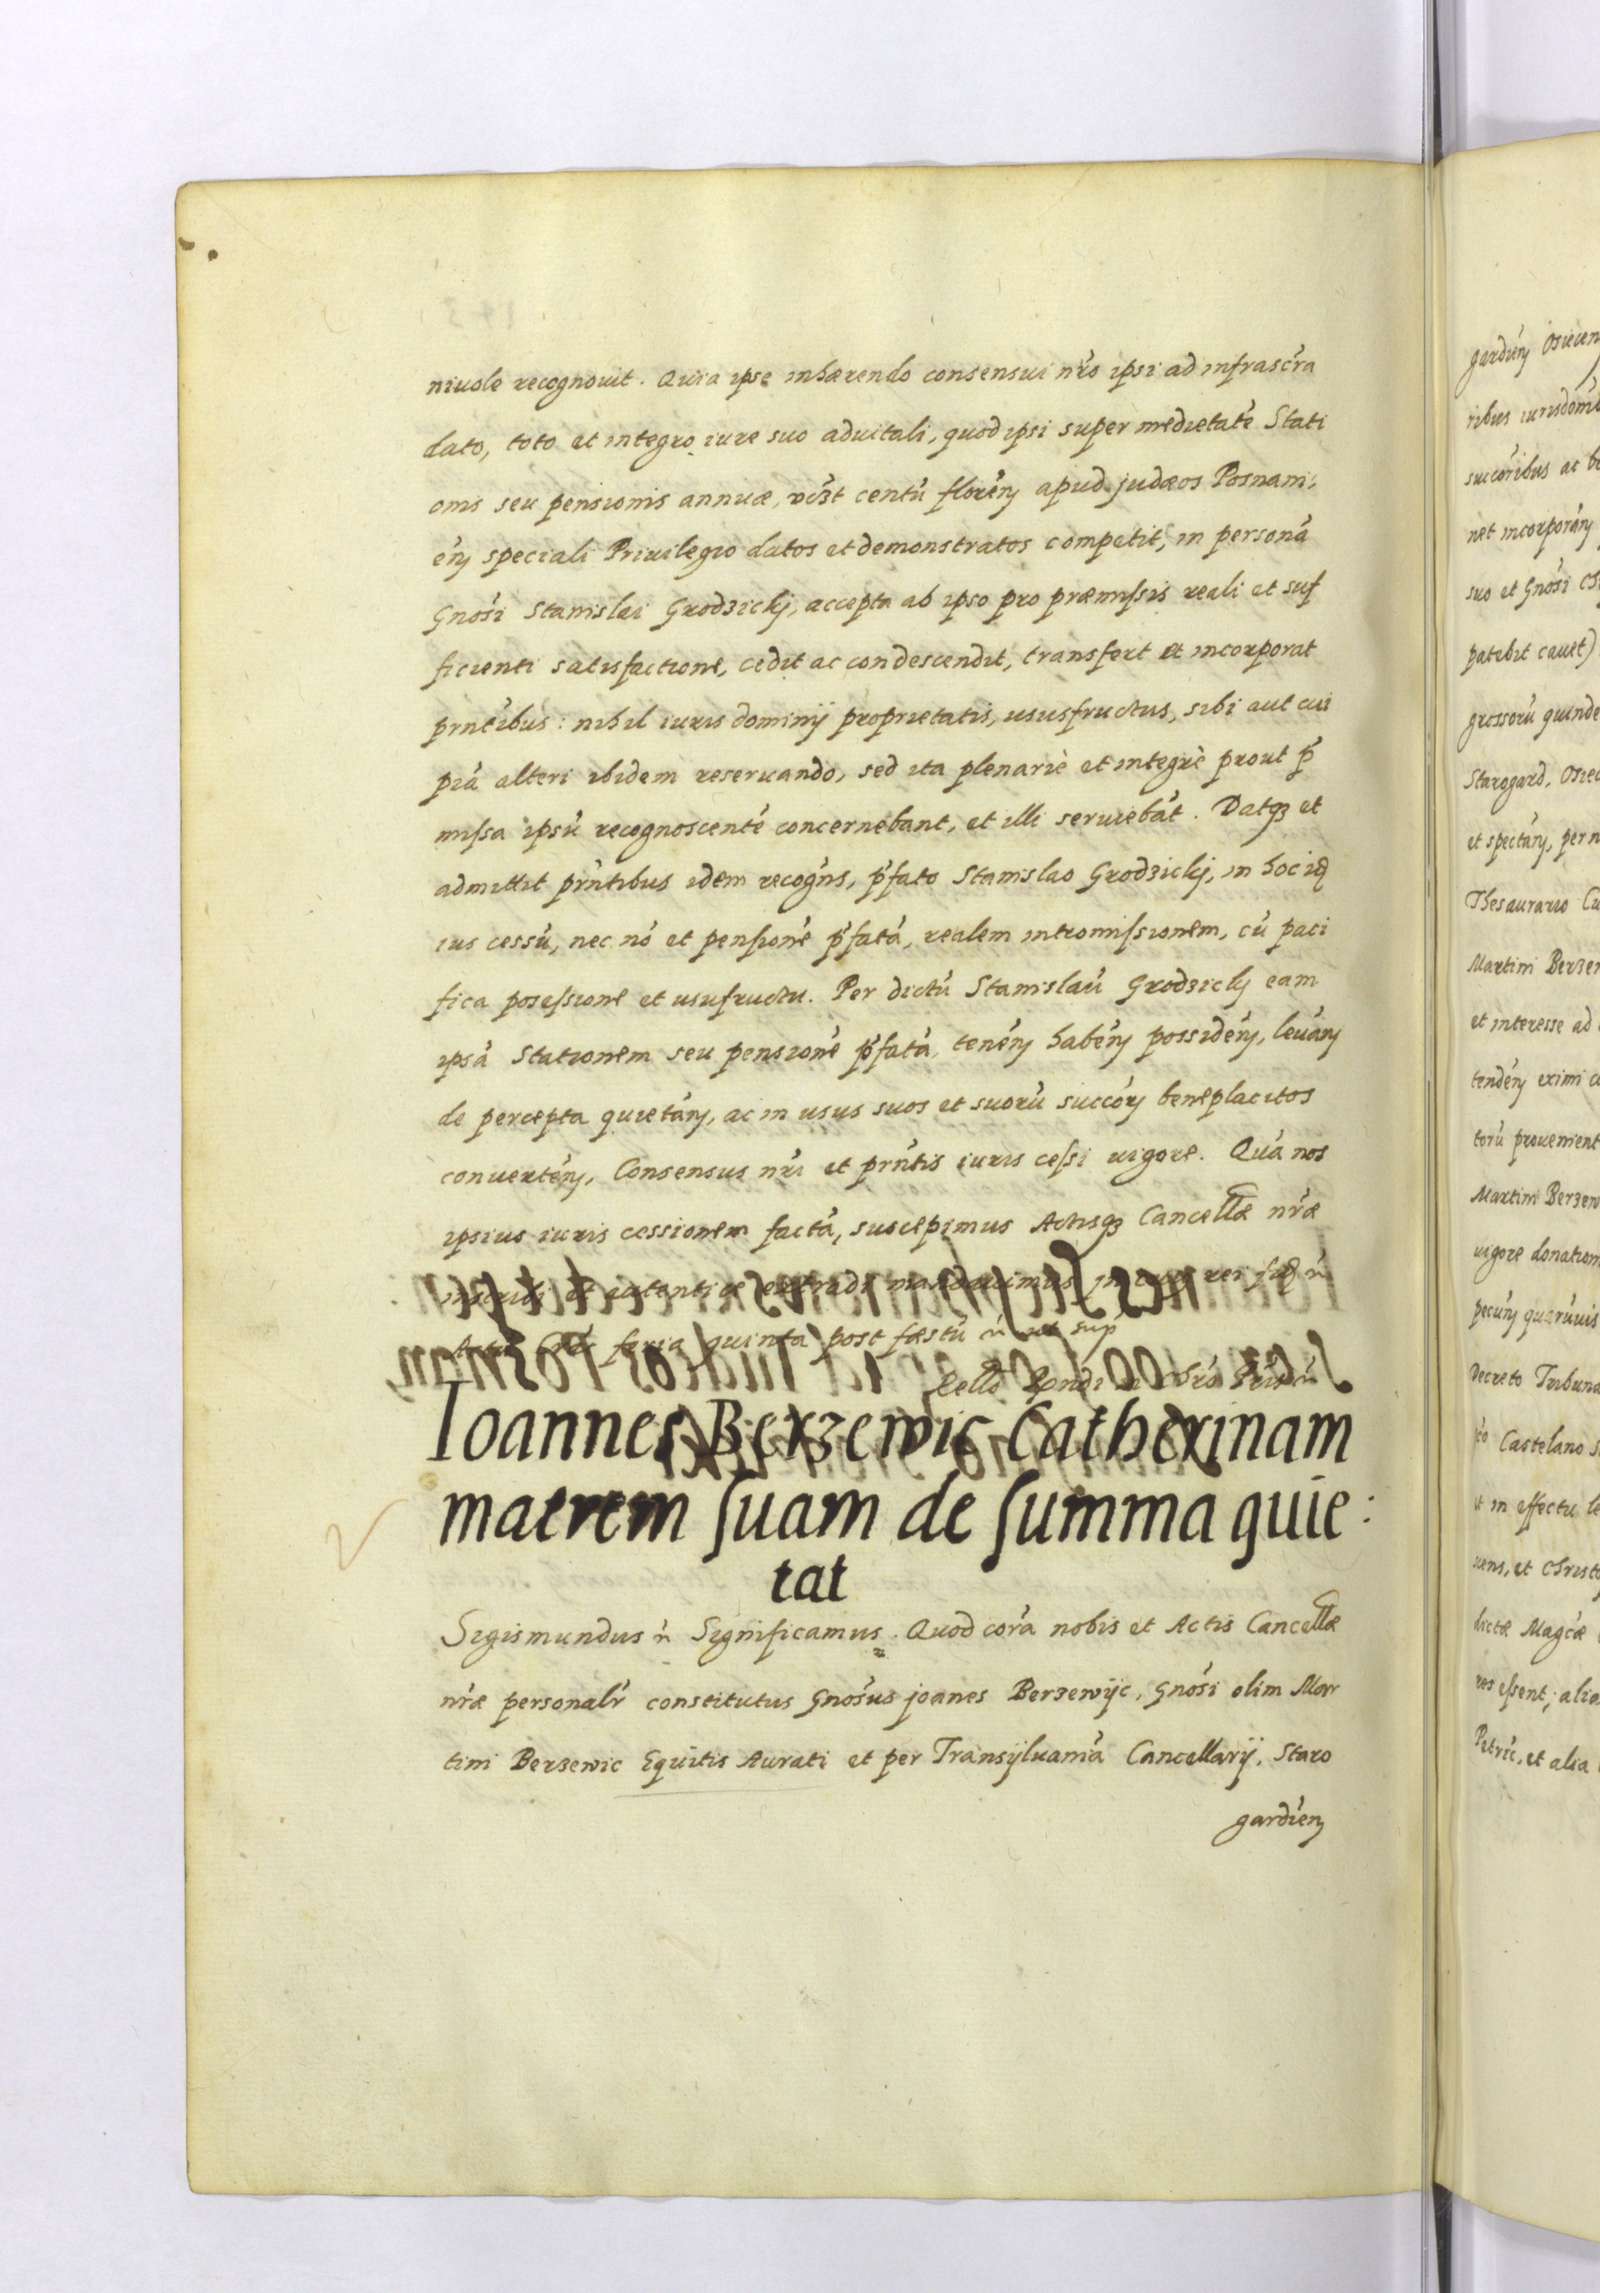 niuole recognouit. Quia ipse inhærendo consensui nr̃o ipsi ad infrascr̃a
dato, toto et integro iure suo aduitali, quod ipsi super medietatẽ Stati
onis seu pensionis annuæ, vi3t centũ florẽn apud judæos Posnani,
ẽn speciali Priuilegio datos et demonstratos competit, in personã
Gnosi Stanislai Grodzickj, accepta ab ipso pro præmissis reali et suf
ficienti satisfactione, cedit ac condescendit, transfert et incorporat
prñtibus: nihil iuris dominij proprietatis, ususfructus, sibi aut cui
piã alteri ibidem reseruando, sed ita plenariè et integrè prout p̃
missa ipsũ recognoscentẽ concernebant, et illi seruiebãt. Datq3 et
admittit prñtibus idem recogñs, p̃fato Stanislao Grodzickj, in hoc id
ius cessũ, nec nõ et pensionẽ p̃fatã, realem intromissionem, cũ paci
fica posessione et usufructu. Per dictũ Stanislaũ Grodzickj eam
ipsã Stationem seu pensionẽ p̃fatã, tenẽn habẽn possidẽn, leuãn
de percepta quietãn, ac in usus suos et suorũ succõr beneplacitos
conuertẽn, Consensus nr̃i et prñtis iuris cessi uigore. Quã nos
ipsius iuris cessionem factã, suscepimus Actisq3 Cancellæ nr̃æ
inscribi et autentice extradi mandauimus in cuius rei fid ñ
Actũ Crã feria quinta post fæstũ ñ ut sup
Ioannes Berzewic Catherinam
matrem suam de summa quie:
tat
Sigismundus ñ Significamus. Quod corã nobis et Actis Cancellæ
nr̃æ personalr̃ constitutus Gnosus joanes Berzewijc, Gnosi olim Mar
tini Berzewic Equitis Aurati et per Transyluaniã Cancellarij, Staro
gardien
gardien Osiecen
succoribus ac
net incorporãn
suo et Gnosi
patebit cauet)
grossorũ quinde
Starogard. Osiec
et spectãn, per
Thesaurario
Martini Berzew
et interesse ad
tendẽn eximi
torũ prouenient
Martini Berzew
uigore donation
Decreto Tribuna
Castelano
ut in effectu
uens, et Christo
dictæ Magcæ
res essent; alia
et alia